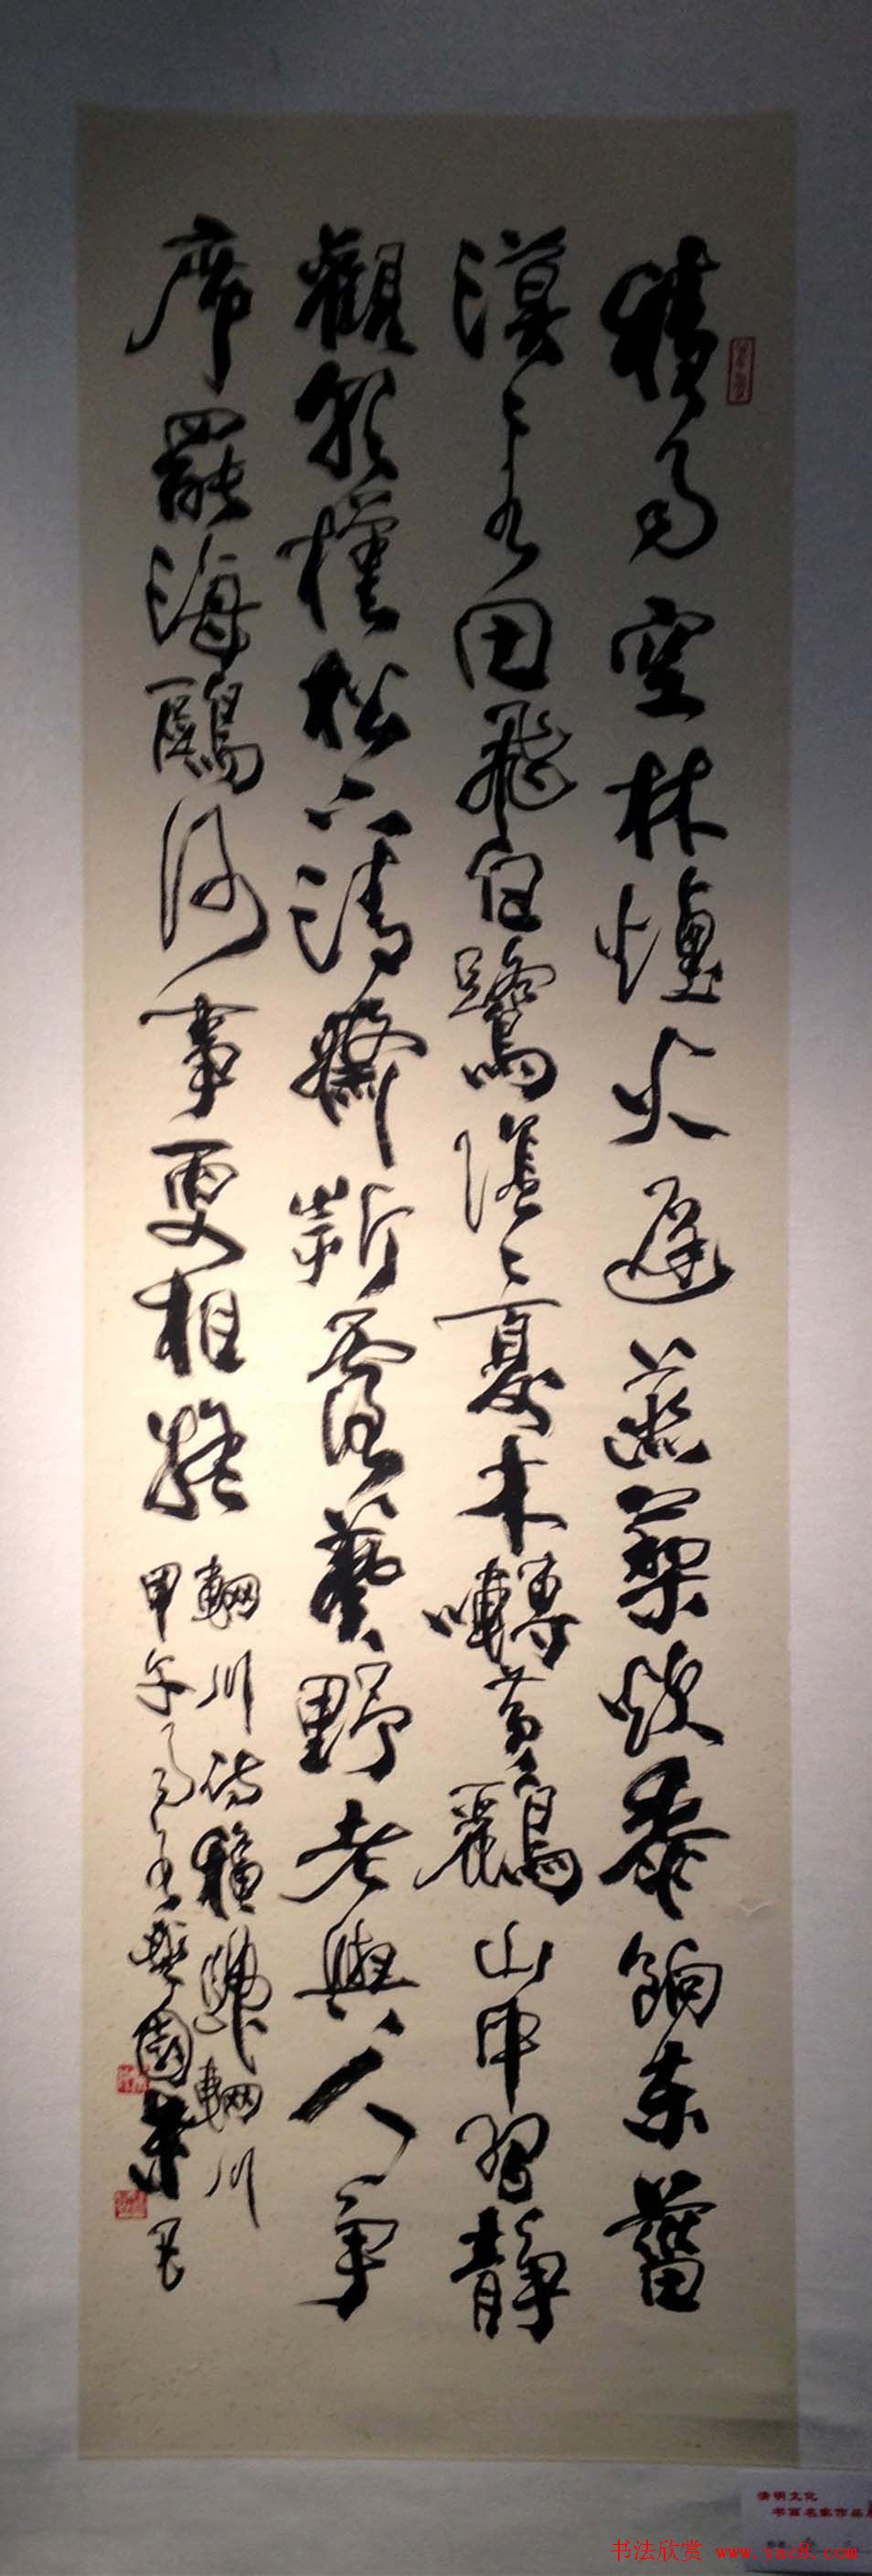 積雨空林煙火遲蒸藜炊黍餉東菑
漠〻水田飛白鷺陰〻夏木囀黃鸝山中習靜
觀朝槿松下清齋折露葵野老與人爭
席罷海鷗何事更相疑
輞川詩積輞川
甲午雨水園
清明文化
书画名家作品
书法欣赏 www.yac8.com